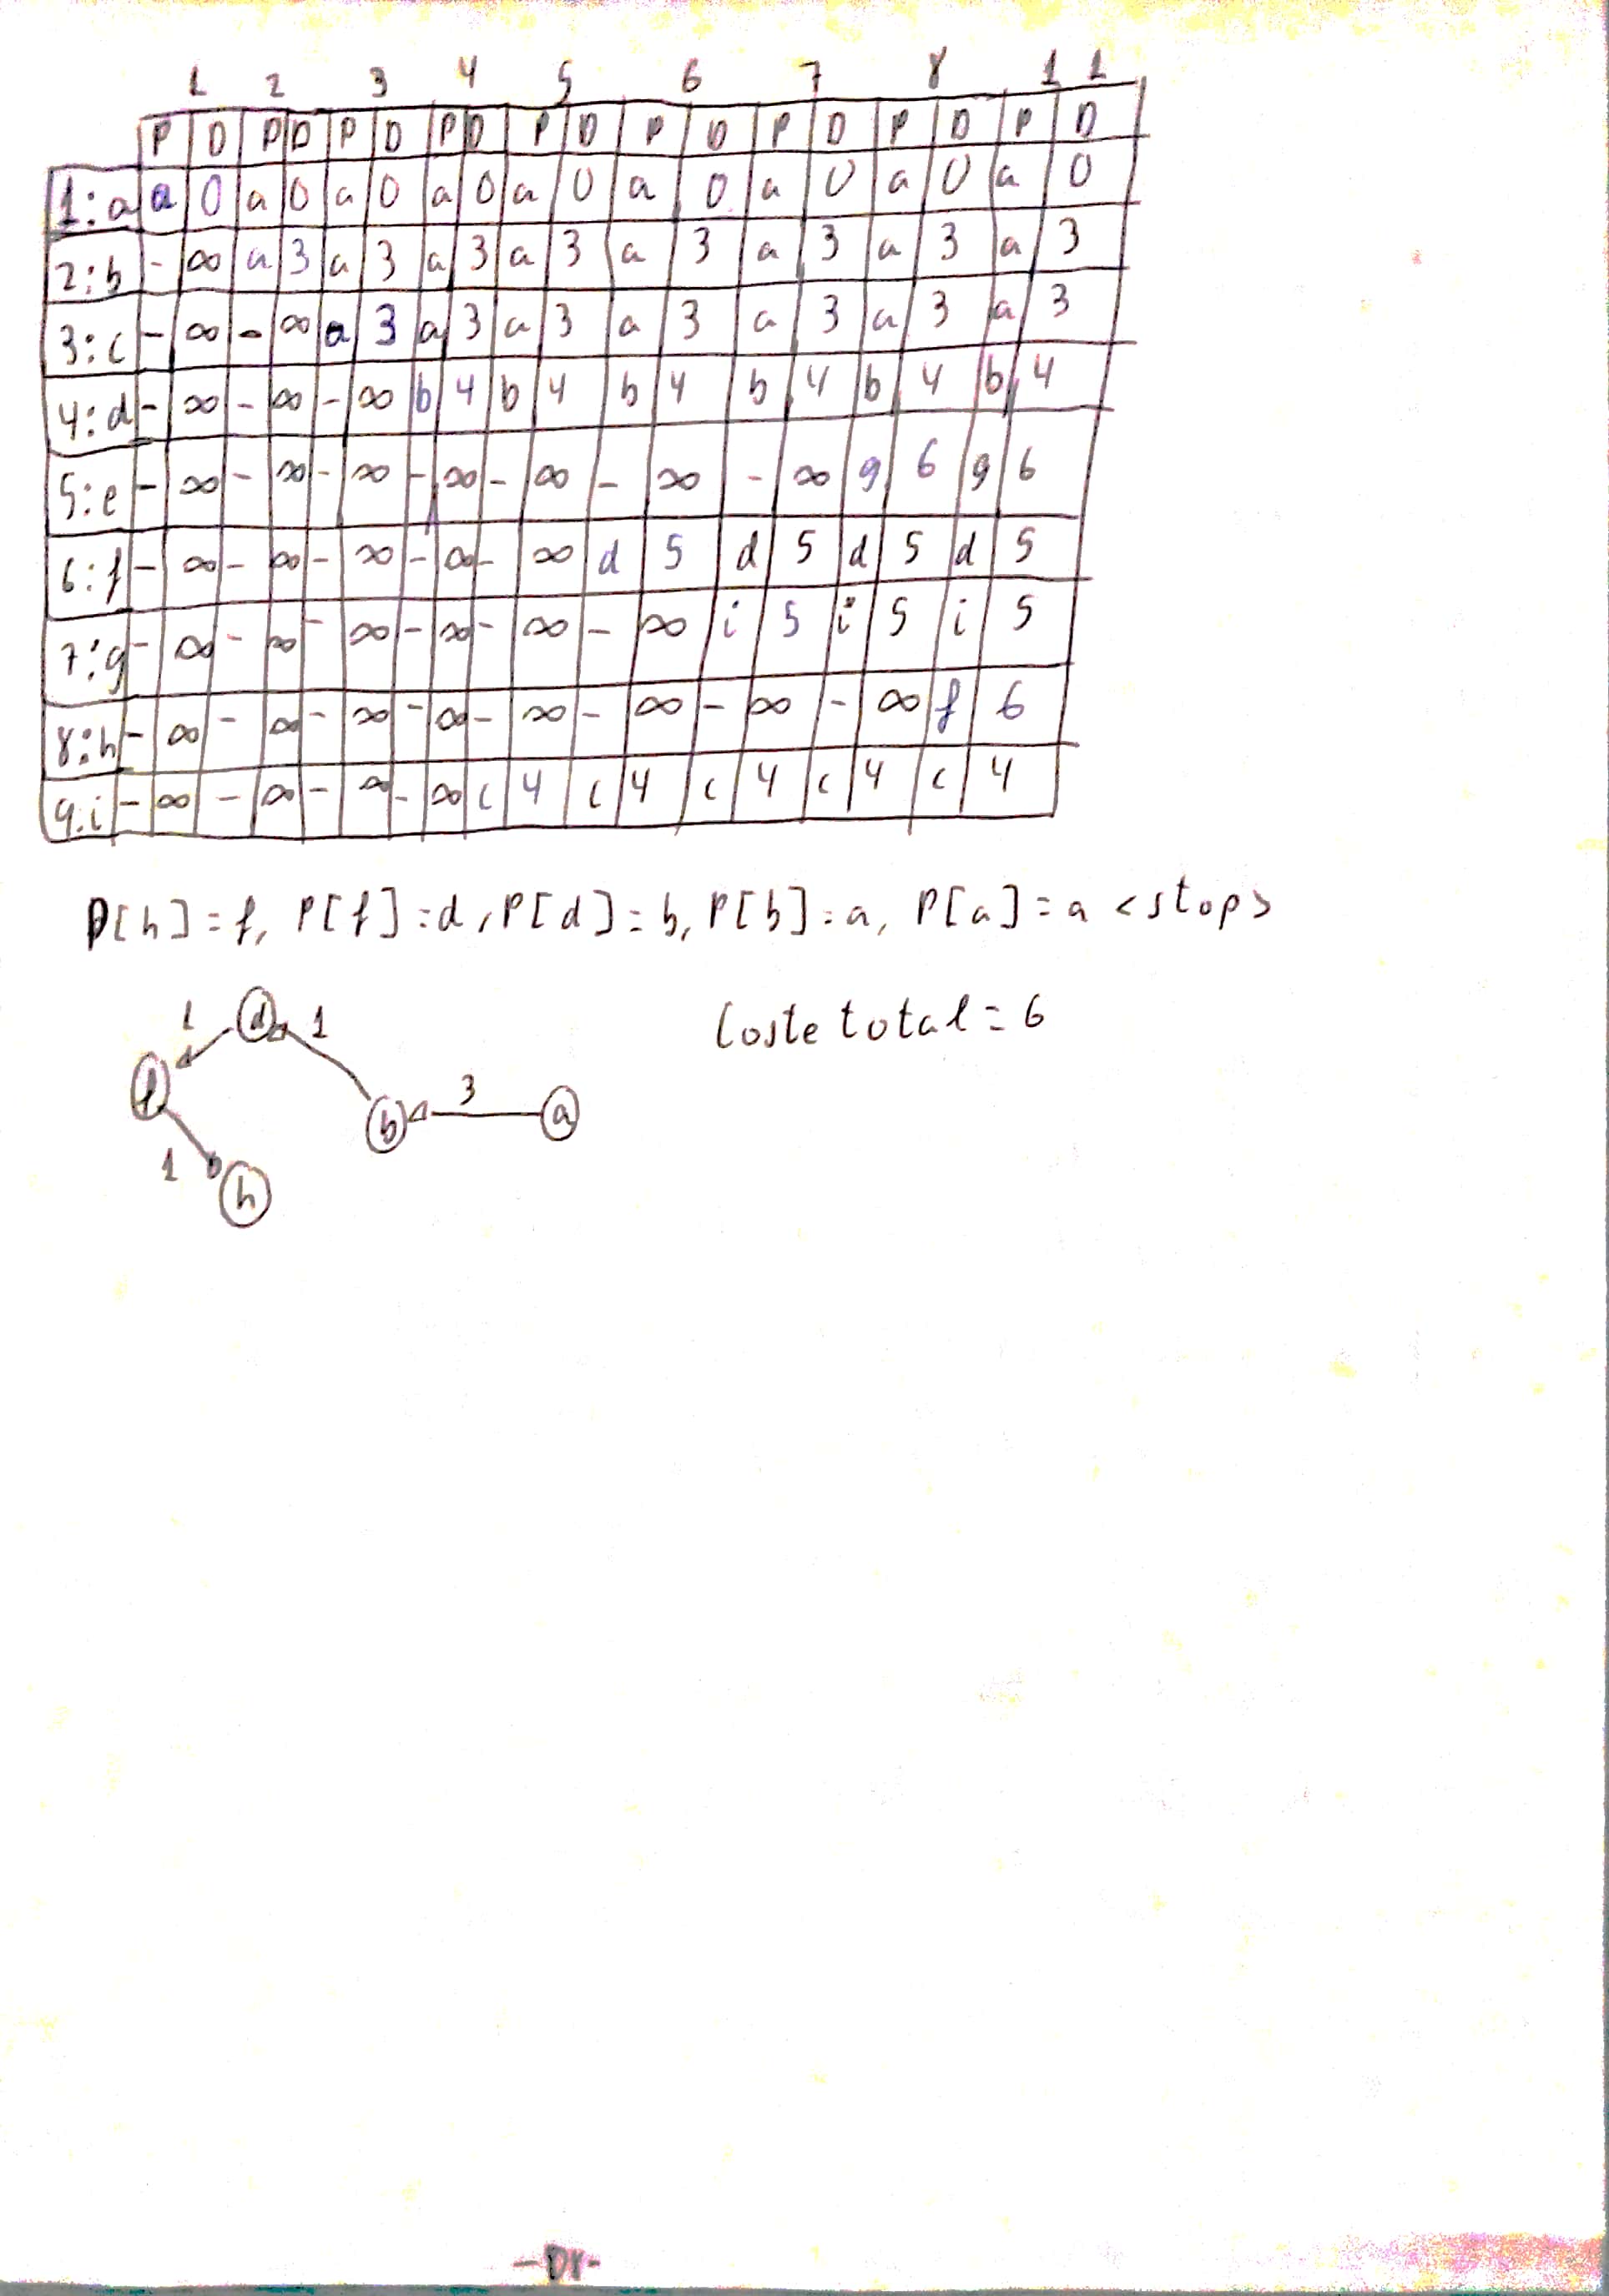 1 2 3 4 5 6 7 8 11
P D P D P D P D P D P D P D P D P D
1:a a 0 a 0 a 0 a 0 a 0 a 0 a 0 a 0 a 0
2:b - ∞ a 3 a 3 a 3 a 3 a 3 a 3 a 3 a 3
3:c - ∞ - ∞ a 3 a 3 a 3 a 3 a 3 a 3 a 3
4:d - ∞ - ∞ - ∞ b 4 b 4 b 4 b 4 b 4 b 4
5:e - ∞ - ∞ - ∞ - ∞ - ∞ - ∞ - ∞ g 6 g 6
6:f - ∞ - ∞ - ∞ - ∞ - ∞ d 5 d 5 d 5 d 5
7:g - ∞ - ∞ - ∞ - ∞ - ∞ - ∞ i 5 i 5 i 5
8:h - ∞ - ∞ - ∞ - ∞ - ∞ - ∞ - ∞ - ∞ f 6
9:i - ∞ - ∞ - ∞ - ∞ c 4 c 4 c 4 c 4 c 4
P[h]=f, P[f]=d, P[d]=b, P[b]=a, P[a]=a <stop>
1 d 1
Coste total=6
f 3
b a
1
h